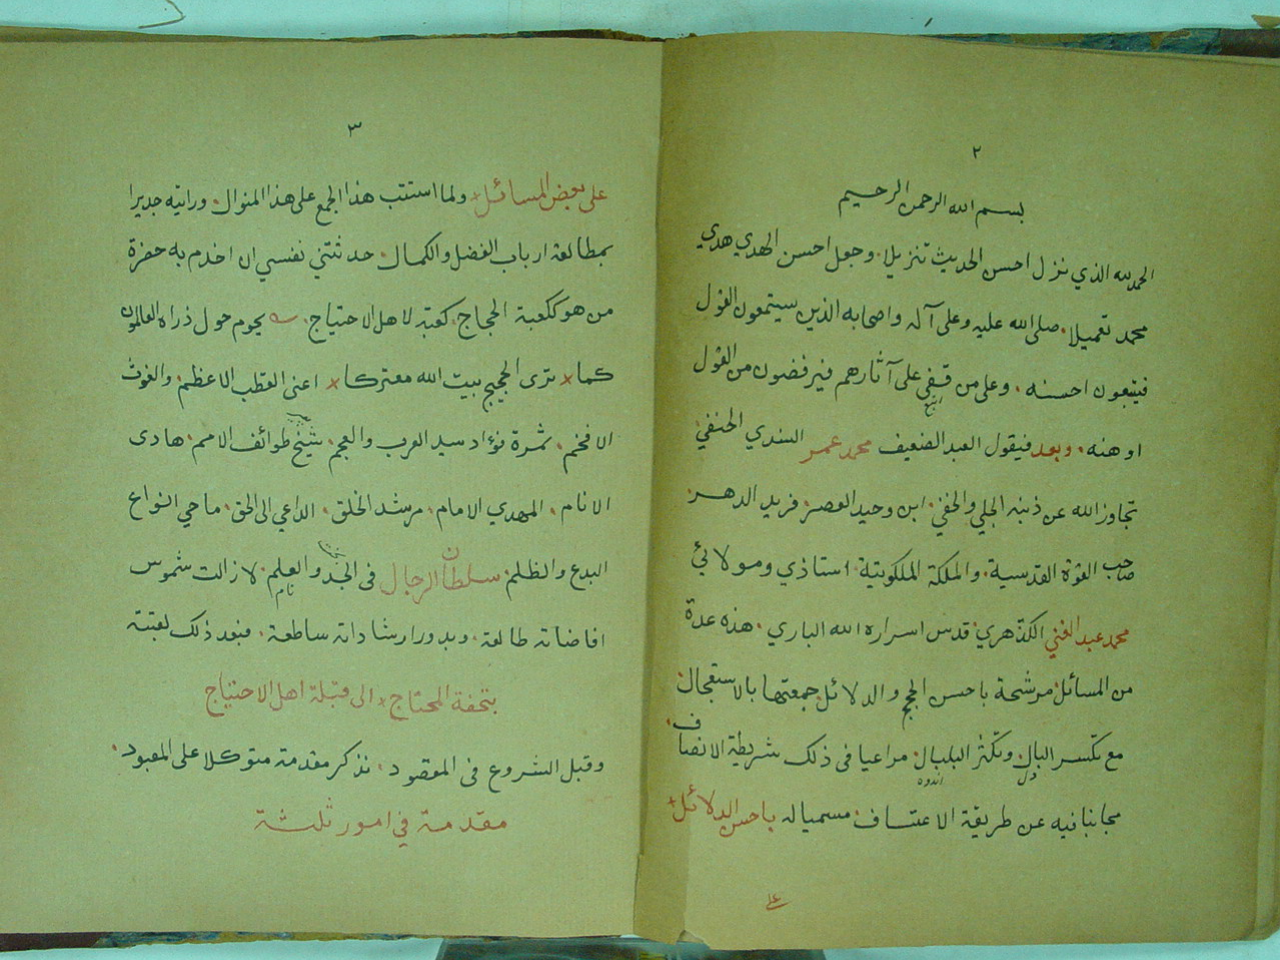 ٢
بسم الله الرحمن الرحيم
الحمد لله الذي نزل احسن الحديث تنزيلا. وجعل احسن الهدي هدي
محمد تعميلا. صلى الله عليه وعلى آله واصحابه الذين سيتمعون القول
فيتبعون احسنه. وعلى من قفى على آثارهم فيرفضون من القول
اتبع
اوهنه. وبعد فيقول العبد الضعيف محمد عمر السندي الحنفي
تجاوز الله عن ذنبه الجلي والخفي. ابن وحيد العصر. فريد الدهر.
صاحب القوة القدسية. والملكة الملكوتية. استاذي ومولائي
محمد عبد الغني الكدهري. قدس اسراره الله الباري. هذه عدة
من المسائل. مرشحة باحسن الحجج والدلائل. جمعتها بالاستعجال
مع تكسر البال وتكثر البلبال. مراعيا في ذلك شريطة الانصاف.
دل اندوه
مجانبا فيه عن طريقة الاعتساف. مسميا له باحسن الدلائل
على
٣
على بعض المسائل ولما استتب هذا الجمع على هذا المنوال. ورايته جديرا
بمطالعة ارباب الفضل والكمال. حدثتني نفسي ان اخدم به حضرة
من هو ككعبة الحجاج. كعبة لاهل الاحتياج. يحوم حول ذراه العالمون
كما ترى الحجيج ببيت الله معتركا اعنى القطب الاعظم. والغوث
الافخم. ثمرة فؤاد سيد العرب والعجم. شيخ طوائف الامم. هادى
الانام. المهدي الامام. مرشد الخلق. الداعي الى الحق. ماحي انواع
البدع والظلم. سلطان الرجال فى الجد والعلم. لا زالت شموس
افاضاته طالعة. وبدور ارشاداته ساطعة. فبعد ذلك لقبته
بتحفة المحتاج الى قبلة اهل الاحتياج
وقبل الشروع فى المقصود. نذكر مقدمة متوكلا على المعبود.
مقدمة في امور ثلثة